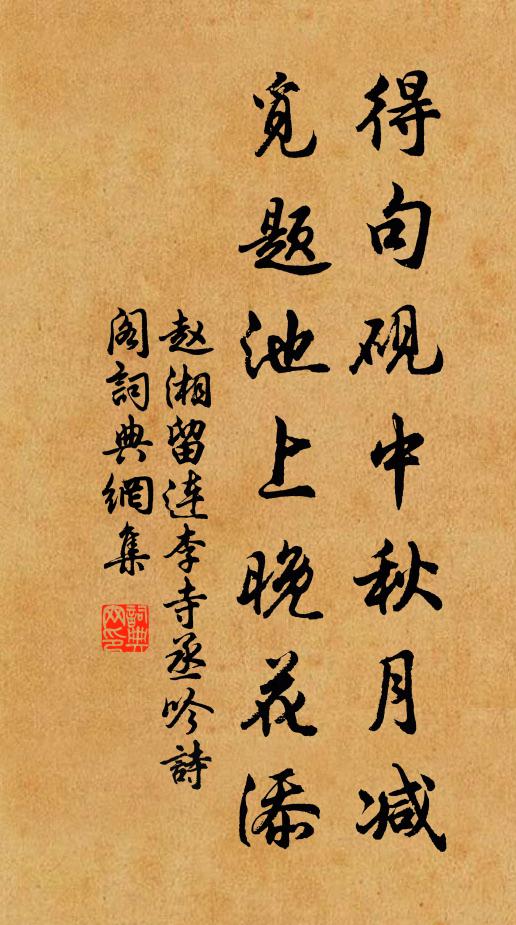 得句砚中秋月减
觅题池上晚花添
赵湘留连李寺丞吟诗
阁词典網集
詞典網印